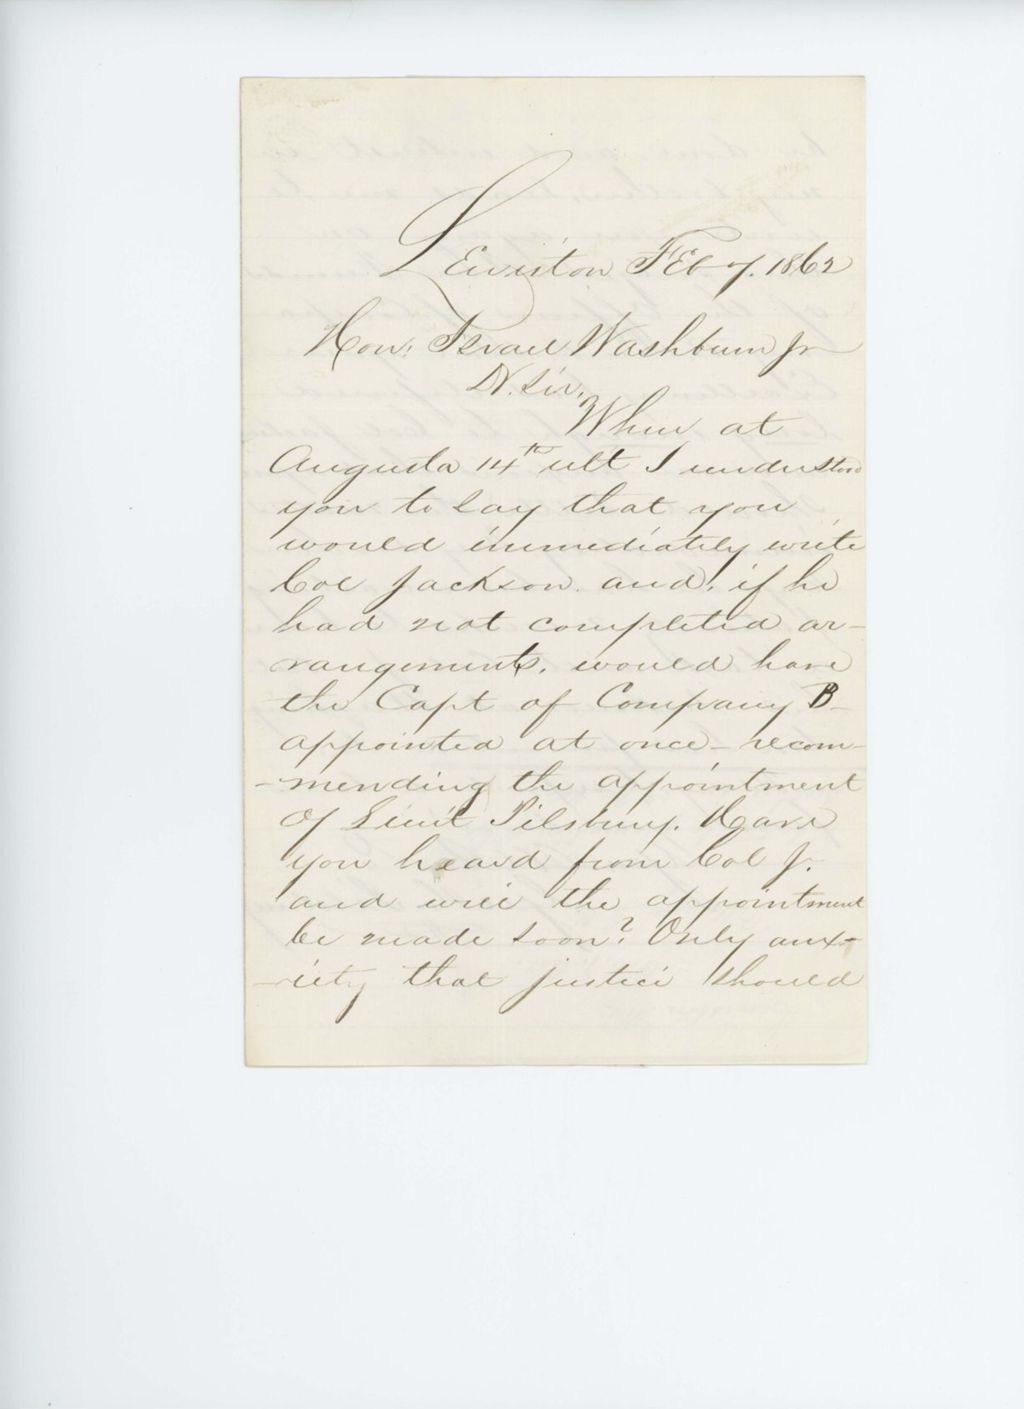 Lewiston Feb 7. 1862
Hon: Israel Washburn Jr
D. Sir,
When at
Augusta 14th ult I understood
you to say that you
would immediately write
Col Jackson. and, if he
had not completed ar-
rangements, would have
the Capt of Company B-
appointed at once - recom-
-mending the appointment
of Lieut Pilsbury. Have
you heard from Col J.
and will the appointment
be made soon? Only anx-
-iety that justice should